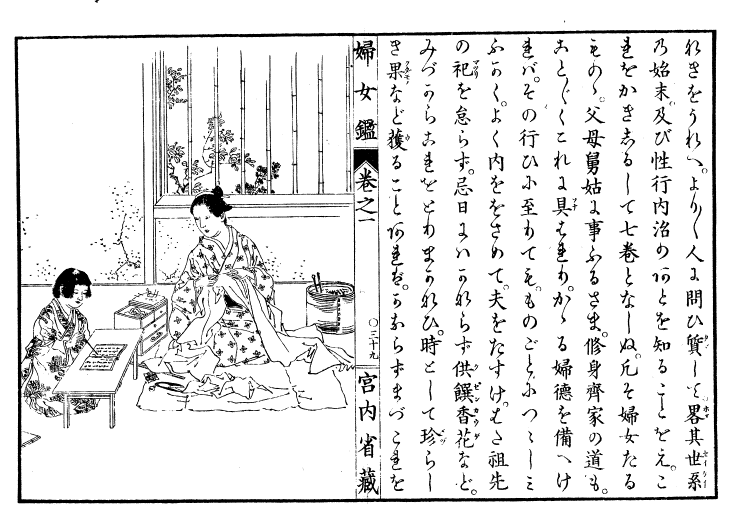 れきをうれへ。より〳〵人に問ひ質して。畧其世系
の始末、及び性行内治のあとを知ることをえ。こ
れをかきしるして七巻となしぬ。凡そ婦女たる
ものゝ。父母舅姑に事ふるさま。修身齊家の道も。
こと〴〵くこれに具はれり。かゝる婦徳を備へけ
れバ。その行ひに至りても。ものごとにつゝしみ
ふかく。よく内ををさめて。夫をたすけ。また祖先
の祀を怠らず。忌日にハかならず供饌香花など。
みづからこれをとりまかなひ。時として珍らし
き果など獲ることあれば。かならずまづこれを
婦女鑑 巻之一 〇三十九 宮内省藏